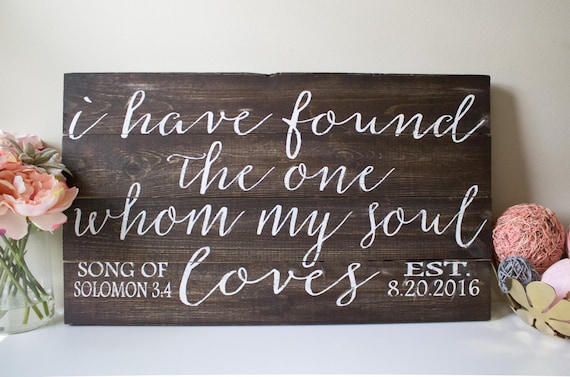 i have found
the one
whom my soul
loves
SONG OF
SOLOMON 3.4
EST.
8.20.2016